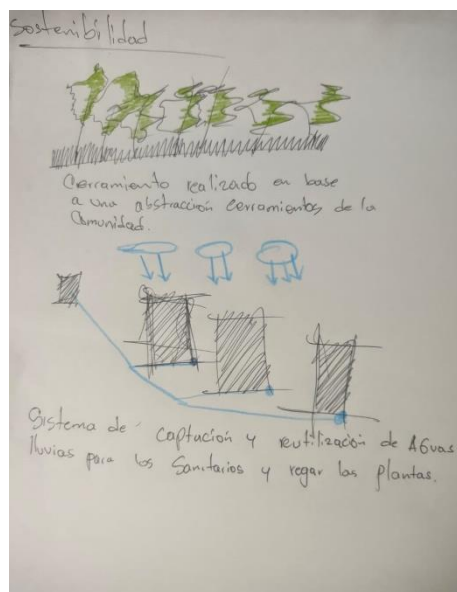 Sostenibilidad
Cerramiento realizado en base
a una abstracción cerramientos de la
Comunidad.
Sistema de captación y reutilización de AGuas
lluvias para los Sanitarios y regar las plantas.